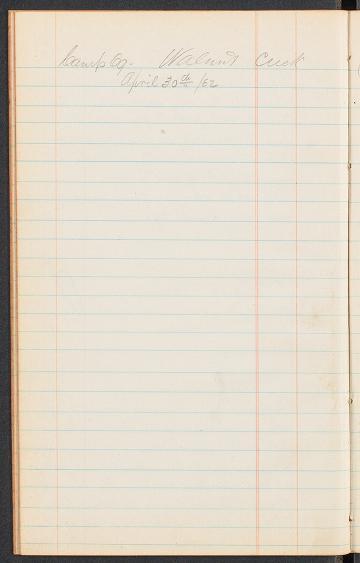 Camp 69. Walnut Creek
April 30th /62